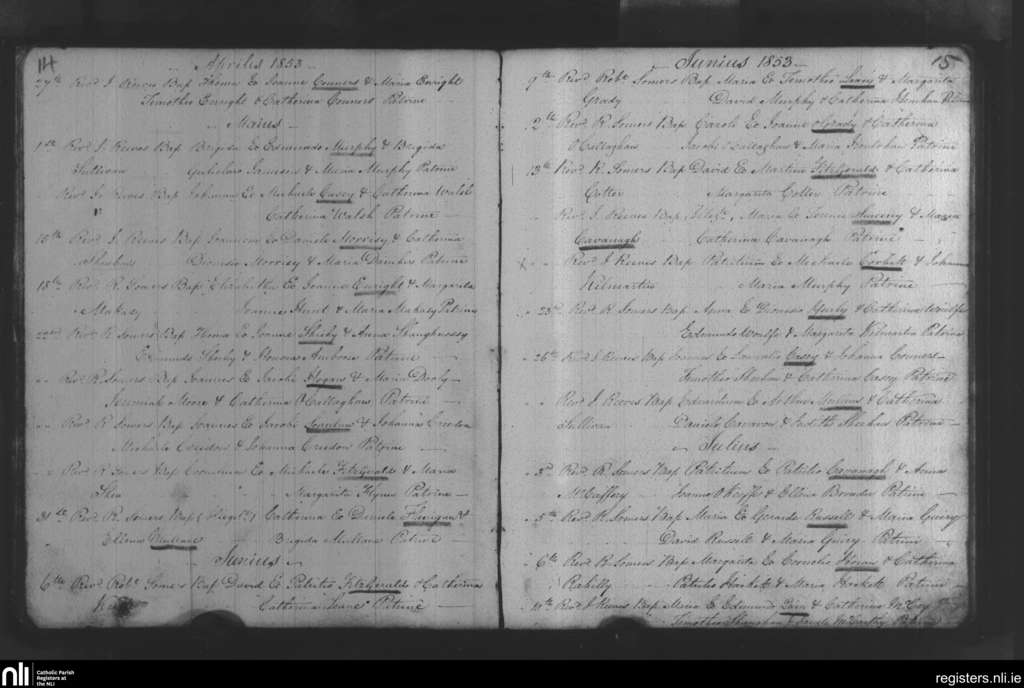 14
Aprilis 1853
27th Revd J. Reeves Bap Thoma Ex Joanne Conners & Maria Enright
Timotheo Enright & Catherina Conners Patrini
Maius
1st Revd J. Reeves Bap Brigida Ex Edmundo Murphy & Brigida
Sullivan Gulielmo & Maria Murphy Patrini
Revd J. Reeves Bap Johannam Ex Michaele Casey & Catherina Walsh
Catherina Walsh Patrini
10th Revd J. Reeves Bap Joannem Ex Daniele Morrisy & Catherina
Dionisio Morrisy & Maria Patrini
18th Revd R. Somers Bap Elizabetha Ex Joanne Enright & Margarita
Makasy Joannes Hunt & Maria Makasy Patrini
22nd Revd R. Somers Bap Thoma Ex Joanne Sheehy & Anna Shanghnessy
Edmundo Sheehy & Honora Ambrose Patrini
Revd R. Somers Bap Joannes Ex Jacobi Hogans & Maria Dealy
Jeremiah Moore & Catherina O'Callaghan Patrini
Revd R Somers Bap Joannes Ex Jacobi & Johanna Creedon
Michaele Creedon & Joanna Creedon Patrini
Revd R. Somers Bap Ex Michaele Fitzgerald & Maria
Shea Margarita Flynn Patrini
31st Revd R. Somers Bap (Illegt.) Catherina Ex Daniele Flanigan &
Elienus Mullane Brigida Mullane Patrini
Junius
6th Revd Robt Somers Bap David Ex Patritio Fitzgerald & Catherina
Catherina Patrini
15
Junius 1853
9th Revd Robt Somers Bap Maria Ex Timotheo Leary & Margarita
Grady David Murphy & Catherina
12th Revd R. Somers Bap Caroli Ex Joanne O'Grady & Catherina
O'Callaghan Jacobi O'Callaghan & Maria Houlihan Patrini
13th Revd R. Somers Bap David Ex Martino Fitzgerald & Catherina
Cotter Margarita Cotter Patrini
Revd J. Reeves Bap, Illegt., Maria Ex & Maria
Cavanagh Catherina Cavanagh Patrini
Revd J Reeves Bap Patritium Ex Michaele Corbett & Johanna
Kilmartin Maria Murphy Patrini
23rd Revd R. Somers Bap Anna Ex Dionisio Hurly & Catherina Woulfe
Edmundo Woulfe & Margarita Kilmartin Patrini
26th Revd J. Reeves Bap Ex Laurentio Casey & Johanna Conners
Timotheo Sheehan & Catherina Casey Patrini
Revd J. Reeves Bap Edwardum Ex Arthuro & Catherina
Sullivan Daniele Cavavon & Judith Sheehan Patrini
Julius
3rd Revd R. Somers Bap Patritium Ex Patritio Cavanagh & Anna
McCaffery Joanne O'Keeffe & Ellena Patrini
5th Revd R. Somers Bap Maria Ex Gerardo Russell & Maria Guiry
David Russell & Maria Guiry Patrini
6th Revd R. Somers Bap Margarita Ex Cornelio Horan & Catherina
Rahilly Patritio Hackett & Maria Hackett Patrini
10th Revd J Reeves Bap Maria Ex Edmundo Quin & Catherina McCoy
Timotheo & McCarthy Patrini
nli Catholic Parish
Registers at
the NLI
registers.nli.ie